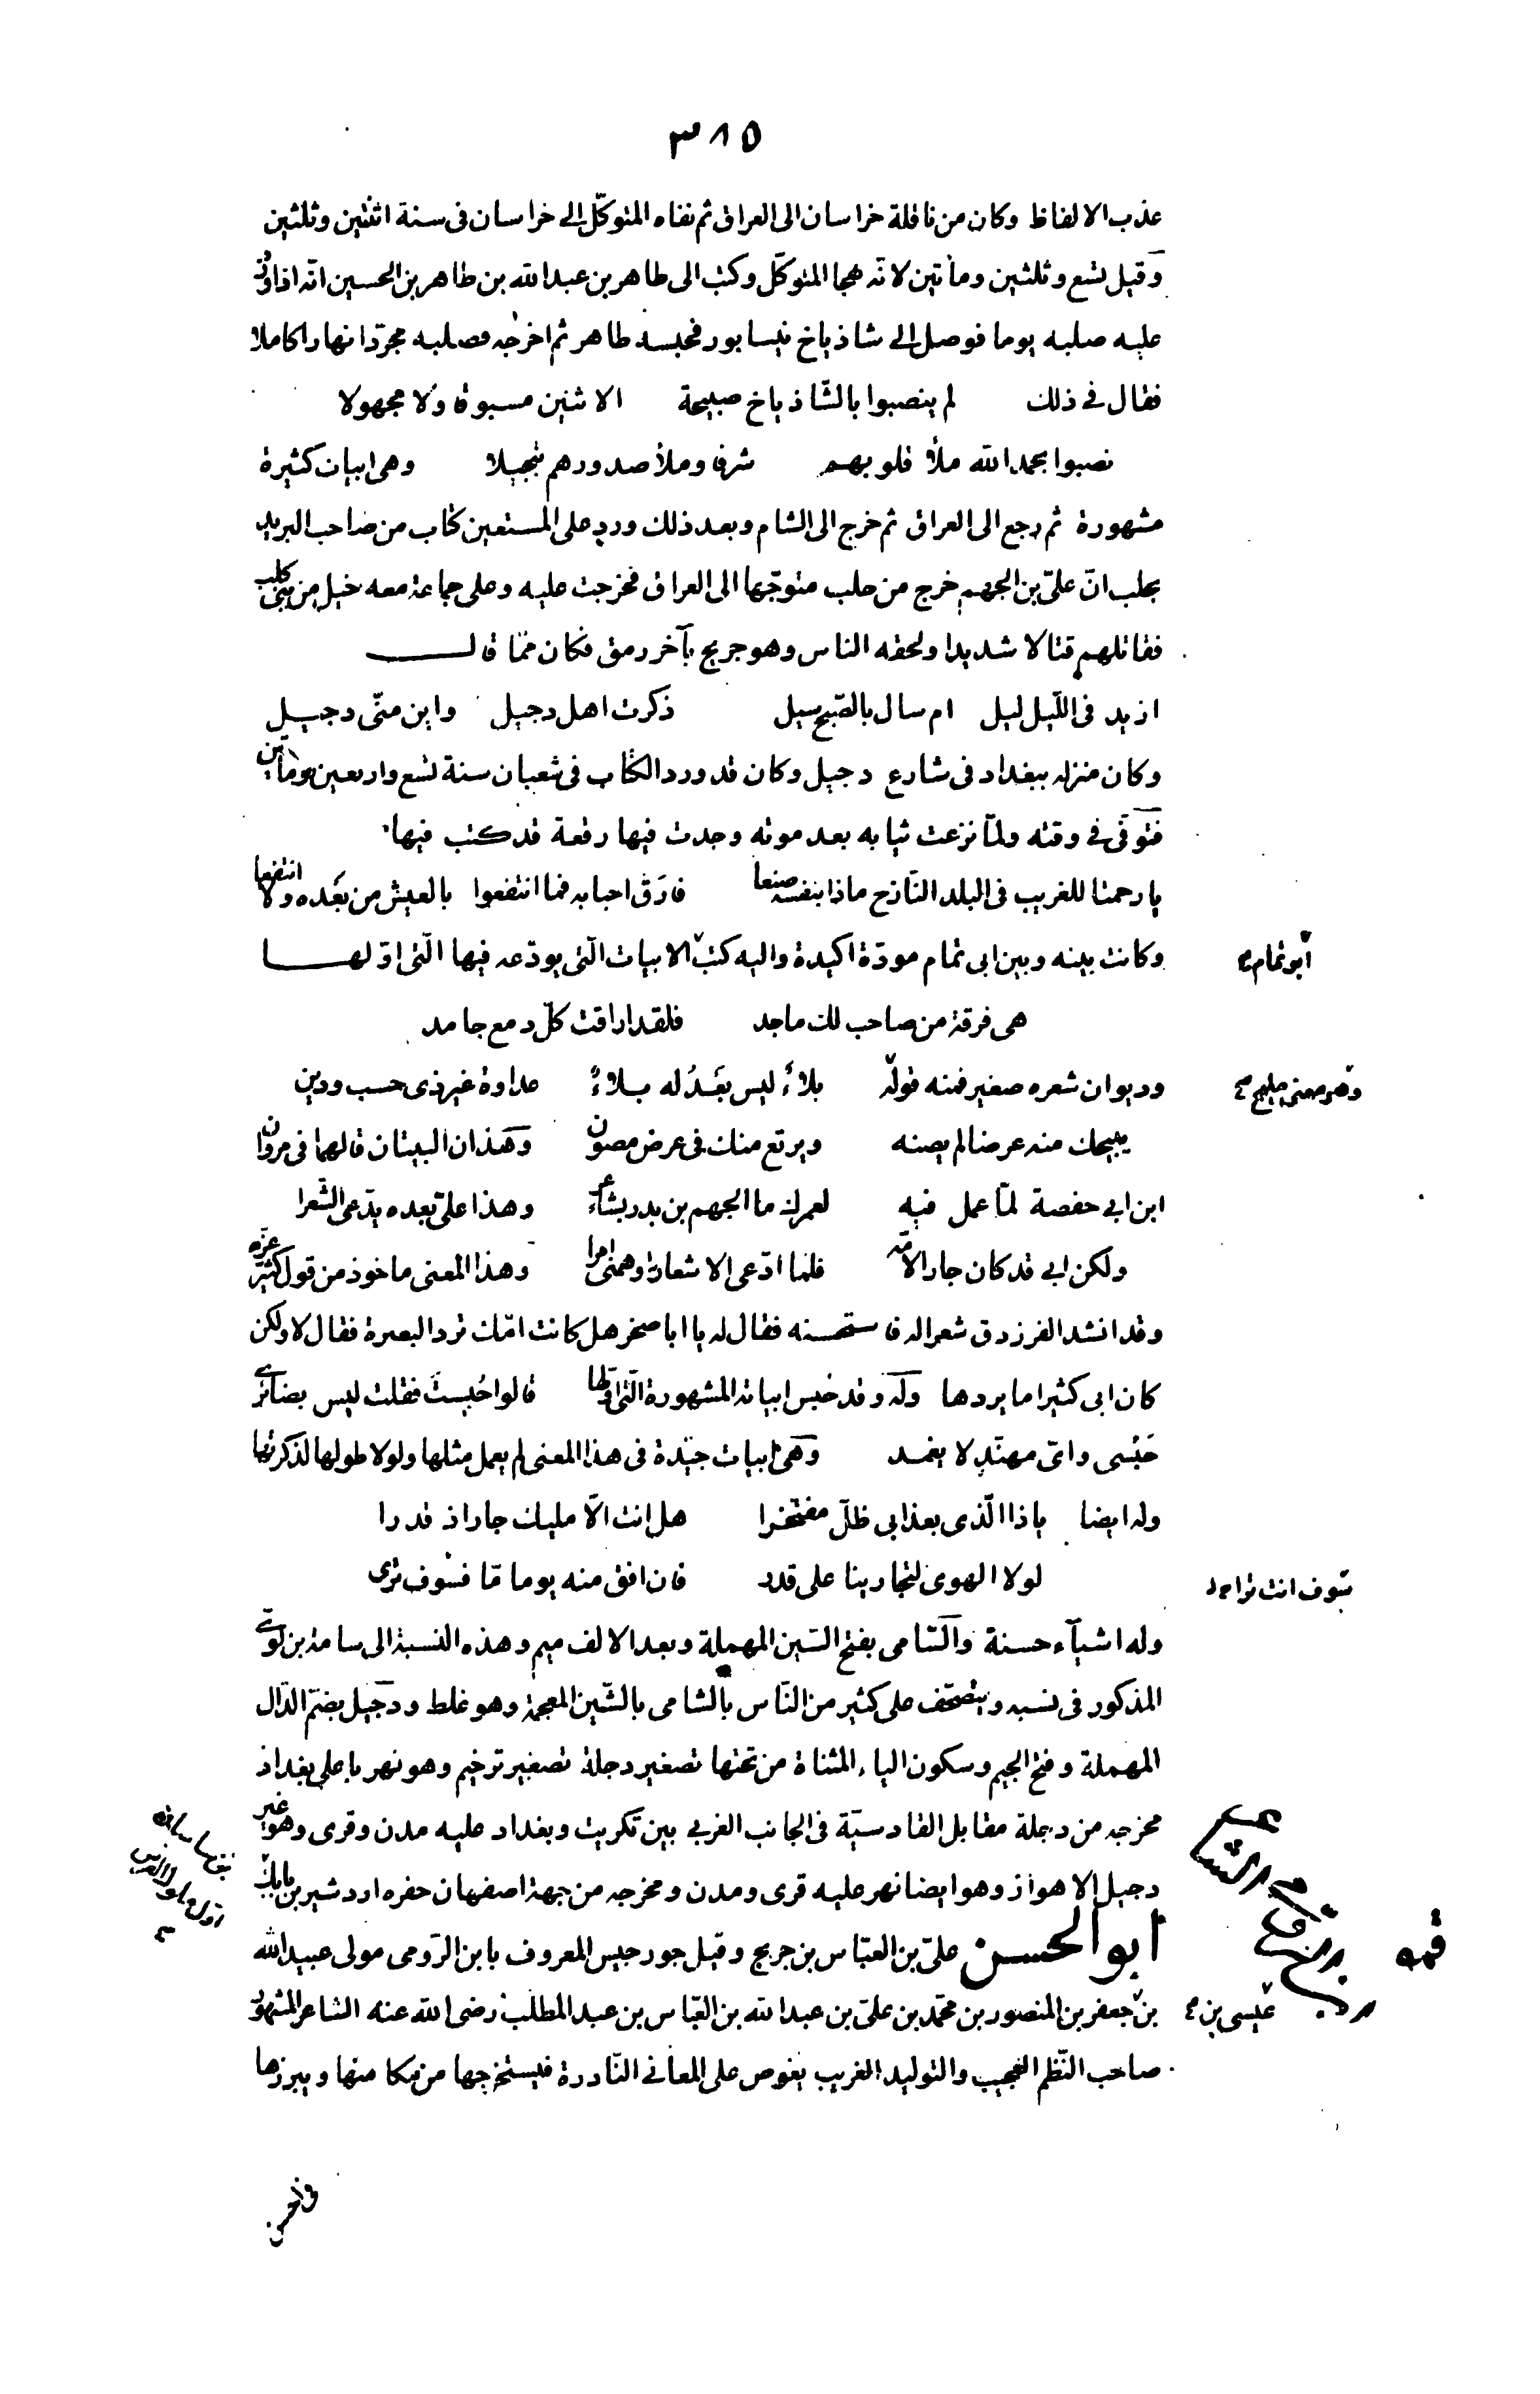 ٣٨٥
عذب الالفاظ وكان من ناقلة خراسان الى العراق ثم نفاه المتوكّل الى خراسان فى سنة اثنتين وثلثين
وقيل تسع وثلثين ومأتين لانه هجا المتوكّل وكتب الى طاهر بن عبدالله بن طاهر بن الحسين انّه اذا ورد
عليه صلبه يوما فوصل الى شاذياخ نيسابور فحبسه طاهر ثم اخرجه فصلبه مجرّدا نهارا كاملا
فقال فى ذلك لم ينصبوا بالشّاذياخ صبيحة الاثنين مسبوقا ولا مجهولا
نصبوا بحمد الله ملأ قلوبهم شرفا وملأ صدورهم تبجيلا وهى ابيات كثيرة
مشهورة ثم رجع الى العراق ثم خرج الى الشام وبعد ذلك ورد على المستعين كتاب من صاحب البريد
بحلب انّ علىّ بن الجهم خرج من حلب متوجّها الى العراق فخرجت عليه وعلى جماعة معه خيل من بنى كلب
فقاتلهم قتالا شديدا ولحقه الناس وهو جريح بآخر رمق فكان ممّا قال
ازيد فى اللّيل ليل ام سال بالصّبح سيل ذكرت اهل دجيل واين منّى دجيل
وكان منزله ببغداد فى شارع دجيل وكان قد ورد الكتاب فى شعبان سنة تسع واربعين ومأتين
فتوفّى فى وقته ولمّا نزعت ثيابه بعد موته وجدت فيها رقعة قد كتب فيها
يا رحمتا للغريب فى البلد النّازح ماذا بنفسه صنعا فارق احبابه فما انتفعوا بالعيش من بعده ولا انتفعا
وكانت بينه وبين ابى تمام مودّة اكيدة واليه كتب الابيات الّتى يودّعه فيها الّتى اوّلها
ابو تمام
هى فرقة من صاحب لك ماجد فلقد اراقت كلّ دمع جامد
وديوان شعره صغير فمنه قوله بلاءٌ ليس يعدله بلاءٌ عداوة غير ذى حسب ودين
وهو معنى مليح
يبيحك منه عرضا لم يصنه ويرتع منك فى عرض مصون وهذان البيتان قالهما فى مروان
ابن ابى حفصة لمّا عمل فيه لعمرك ما الجهم بن بدر بشاعر وهذا علىّ بعده يدّعى الشّعرا
ولكن ابى قد كان جارا لامّه فلما ادّعى الاشعار اوهمنى امرا وهذا المعنى ماخوذ من قول كثيّر عزّه
وقد انشد الفرزدق شعرا له فاستحسنه فقال له يا ابا صخر هل كانت امّك ترد البصرة فقال لا ولكن
كان ابى كثيرا ما يردها وله وقد حبس ابياته المشهورة الّتى اوّلها قالوا حُبستَ فقلت ليس بضائرى
حَبْسى واىّ مهنّدٍ لا يغمد وهى ابيات جيّدة فى هذا المعنى لم يعمل مثلها ولولا طولها لذكرتها
وله ايضا يا ذا الّذى بعذابى ظلّ مفتخرا هل انت الّا مليك جار اذ قدرا
لولا الهوى لتجارينا على قدر فان افق منه يوما مّا فسوف ترى
وله اشيآء حسنة والسّامى بفتح السّين المهملة وبعد الالف ميم وهذه النسبة الى سامة بن لوىّ
المذكور فى نسبه ويتصحّف على كثير من النّاس بالشامى بالشّين المعجمة وهو غلط ودجيل بضمّ الدّال
المهملة وفتح الجيم وسكون الياء المثناة من تحتها تصغير دجلة تصغير ترخيم وهو نهر باعلى بغداد
مخرجه من دجلة مقابل القادسيّة فى الجانب الغربى بين تكريت وبغداد عليه مدن وقرى وهو غير
دجيل الاهواز وهو ايضا نهر عليه قرى ومدن ومخرجه من جهة اصفهان حفره اردشير بن بابك
ابو الحسن علىّ بن العبّاس بن جريج وقيل جورجيس المعروف بابن الرّومى مولى عبيد الله
بن جعفر بن المنصور بن محمّد بن علىّ بن عبدالله بن العبّاس بن عبدالمطلب رضى الله عنه الشاعر المشهور
عيسى بن
صاحب النّظم العجيب والتوليد الغريب يغوص على المعانى النّادرة فيستخرجها من مكامنها ويبرزها
فى احسن